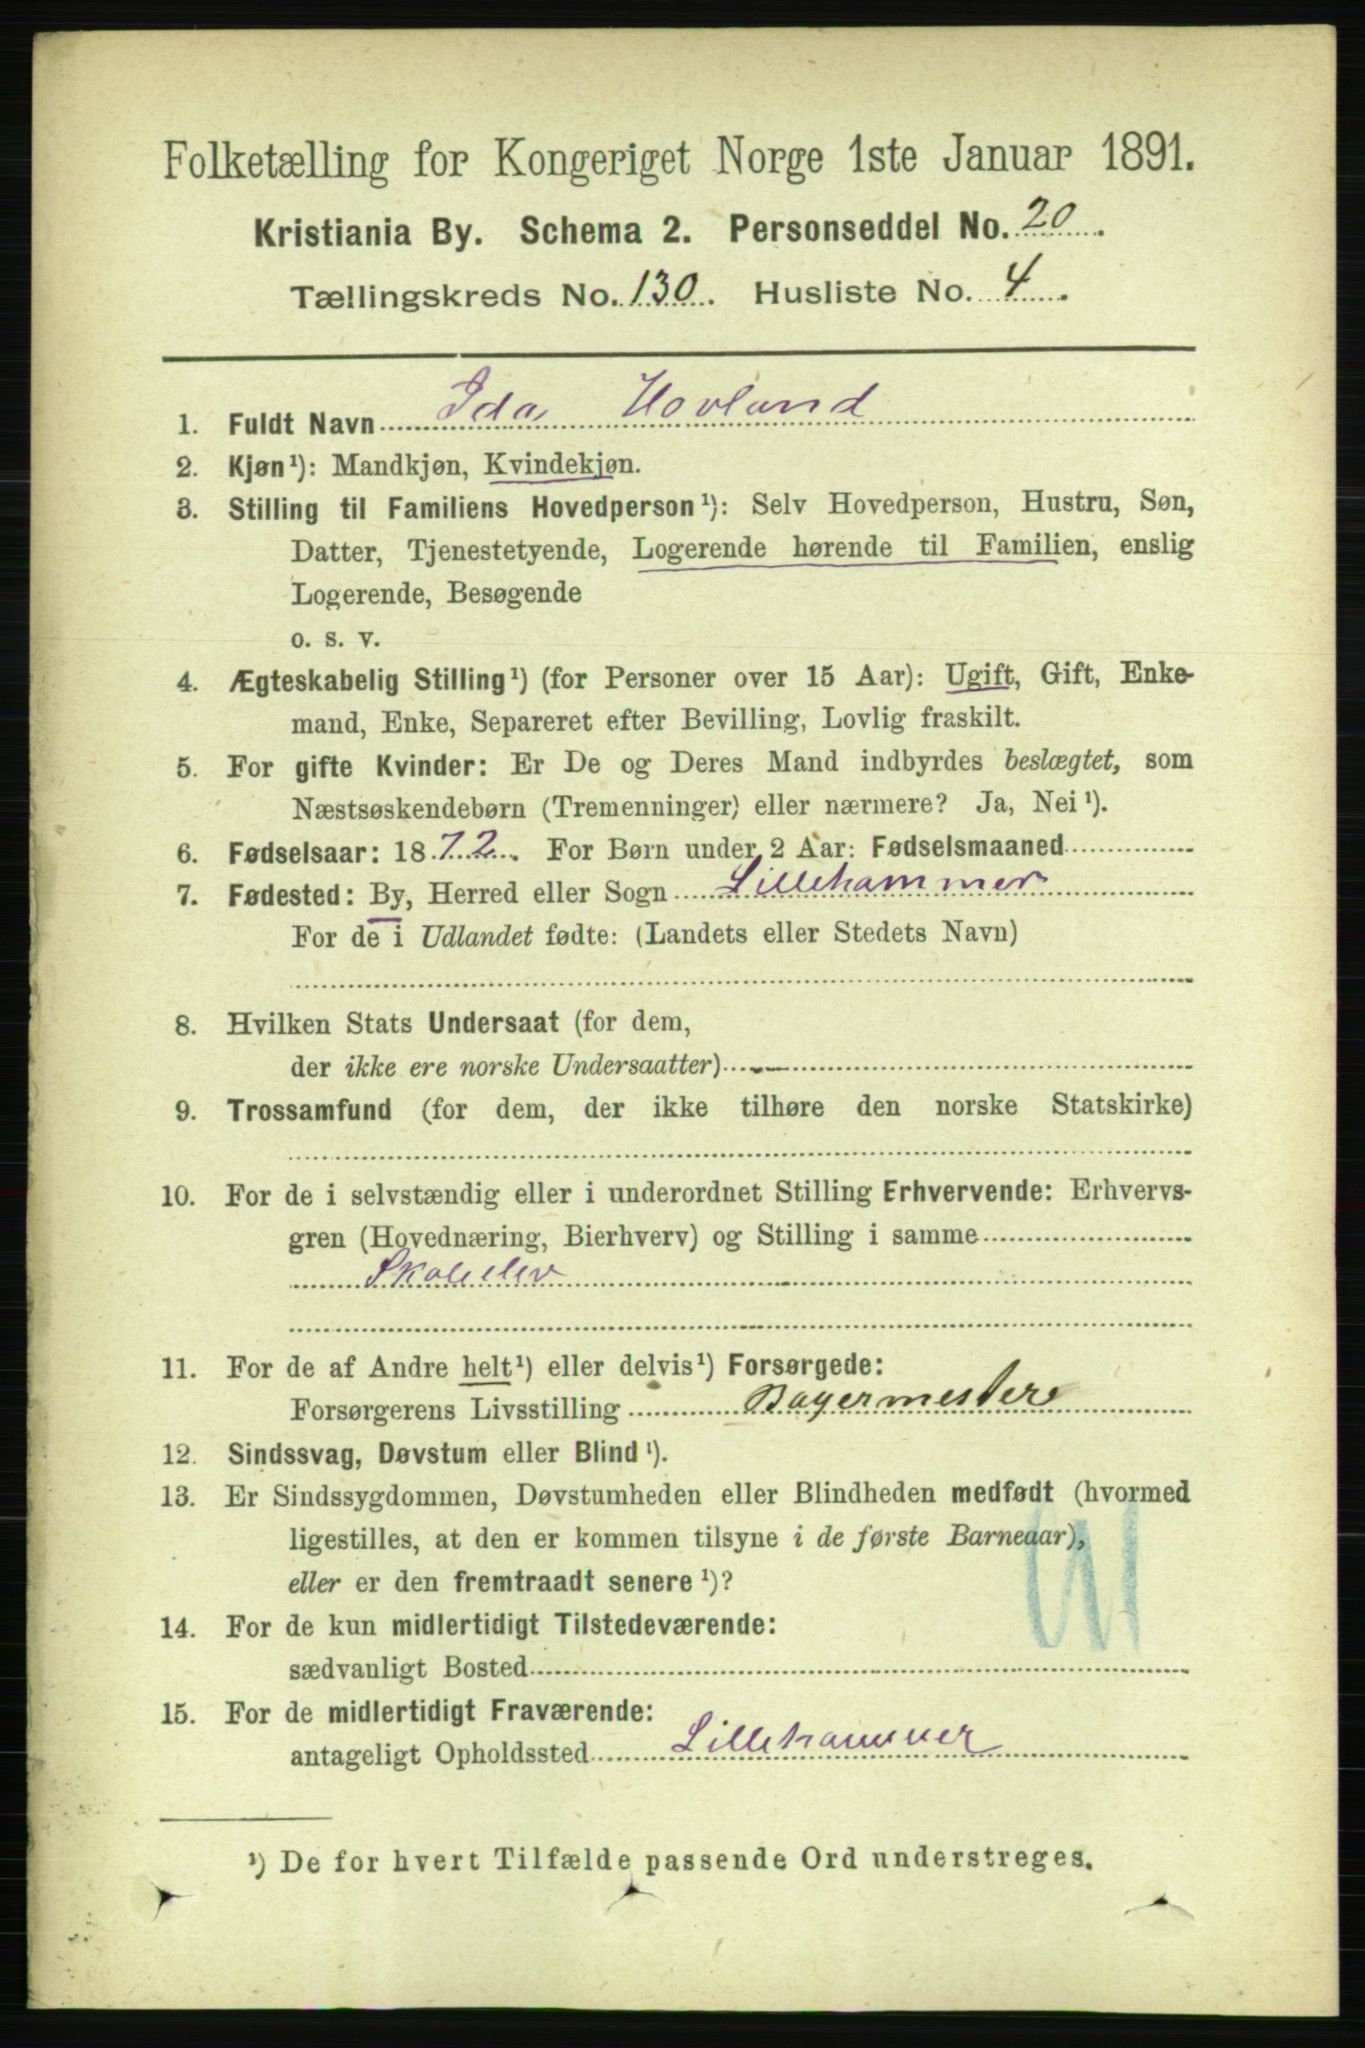 Folketælling for Kongeriget Norge 1ste Januar 1891.
Kristiania By. Schema 2. Personseddel No. 20.
Tællingskreds No. 130. Husliste No. 4.
1. Fuldt Navn Ida Hovland
2. Kjøn¹): Mandkjøn, Kvindekjøn.
3. Stilling til Familiens Hovedperson¹): Selv Hovedperson, Hustru, Søn,
Datter, Tjenestetyende, Logerende hørende til Familien, enslig
Logerende, Besøgende
o. s. v.
4. Ægteskabelig Stilling¹) (for Personer over 15 Aar): Ugift, Gift, Enke-
mand, Enke, Separeret efter Bevilling, Lovlig fraskilt.
5. For gifte Kvinder: Er De og Deres Mand indbyrdes beslægtet, som
Næstsøskendebørn (Tremenninger) eller nærmere? Ja, Nei¹).
6. Fødselsaar: 1872. For Børn under 2 Aar: Fødselsmaaned
7. Fødested: By, Herred eller Sogn Lillehammer
For de i Udlandet fødte: (Landets eller Stedets Navn)
8. Hvilken Stats Undersaat (for dem,
der ikke ere norske Undersaatter)
9. Trossamfund (for dem, der ikke tilhøre den norske Statskirke)
10. For de i selvstændig eller i underordnet Stilling Erhvervende: Erhvervs-
gren (Hovednæring, Bierhverv) og Stilling i samme
Skoleelev
11. For de af Andre helt¹) eller delvis¹) Forsørgede:
Forsørgerens Livsstilling Bagermester
12. Sindssvag, Døvstum eller Blind¹).
13. Er Sindssygdommen, Døvstumheden eller Blindheden medfødt (hvormed
ligestilles, at den er kommen tilsyne i de første Barneaar),
eller er den fremtraadt senere¹)?
14. For de kun midlertidigt Tilstedeværende:
sædvanligt Bosted
15. For de midlertidigt Fraværende:
antageligt Opholdssted Lillehammer
¹) De for hvert Tilfælde passende Ord understreges.